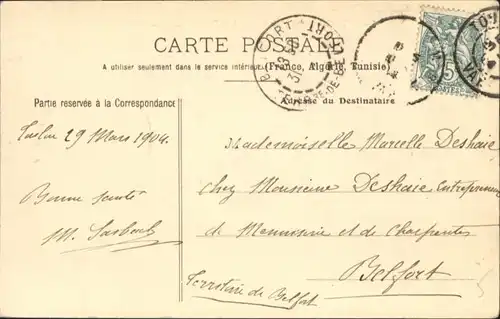 CARTE POSTALE
A utiliser seulement dans le service intérieur (France, Algérie, Tunisie)
BELFORT
TERRtre-DE-BELFORT
5
Partie réservée à la Correspondance
Adresse du Destinataire
29 Mars 1904.
Bonne santé
M.
Mademoiselle Marcelle Deshaie
chez Monsieur Deshaie Entrepreneur
de Menuiserie et de Charpentes
Belfort
Territoire de Belfort